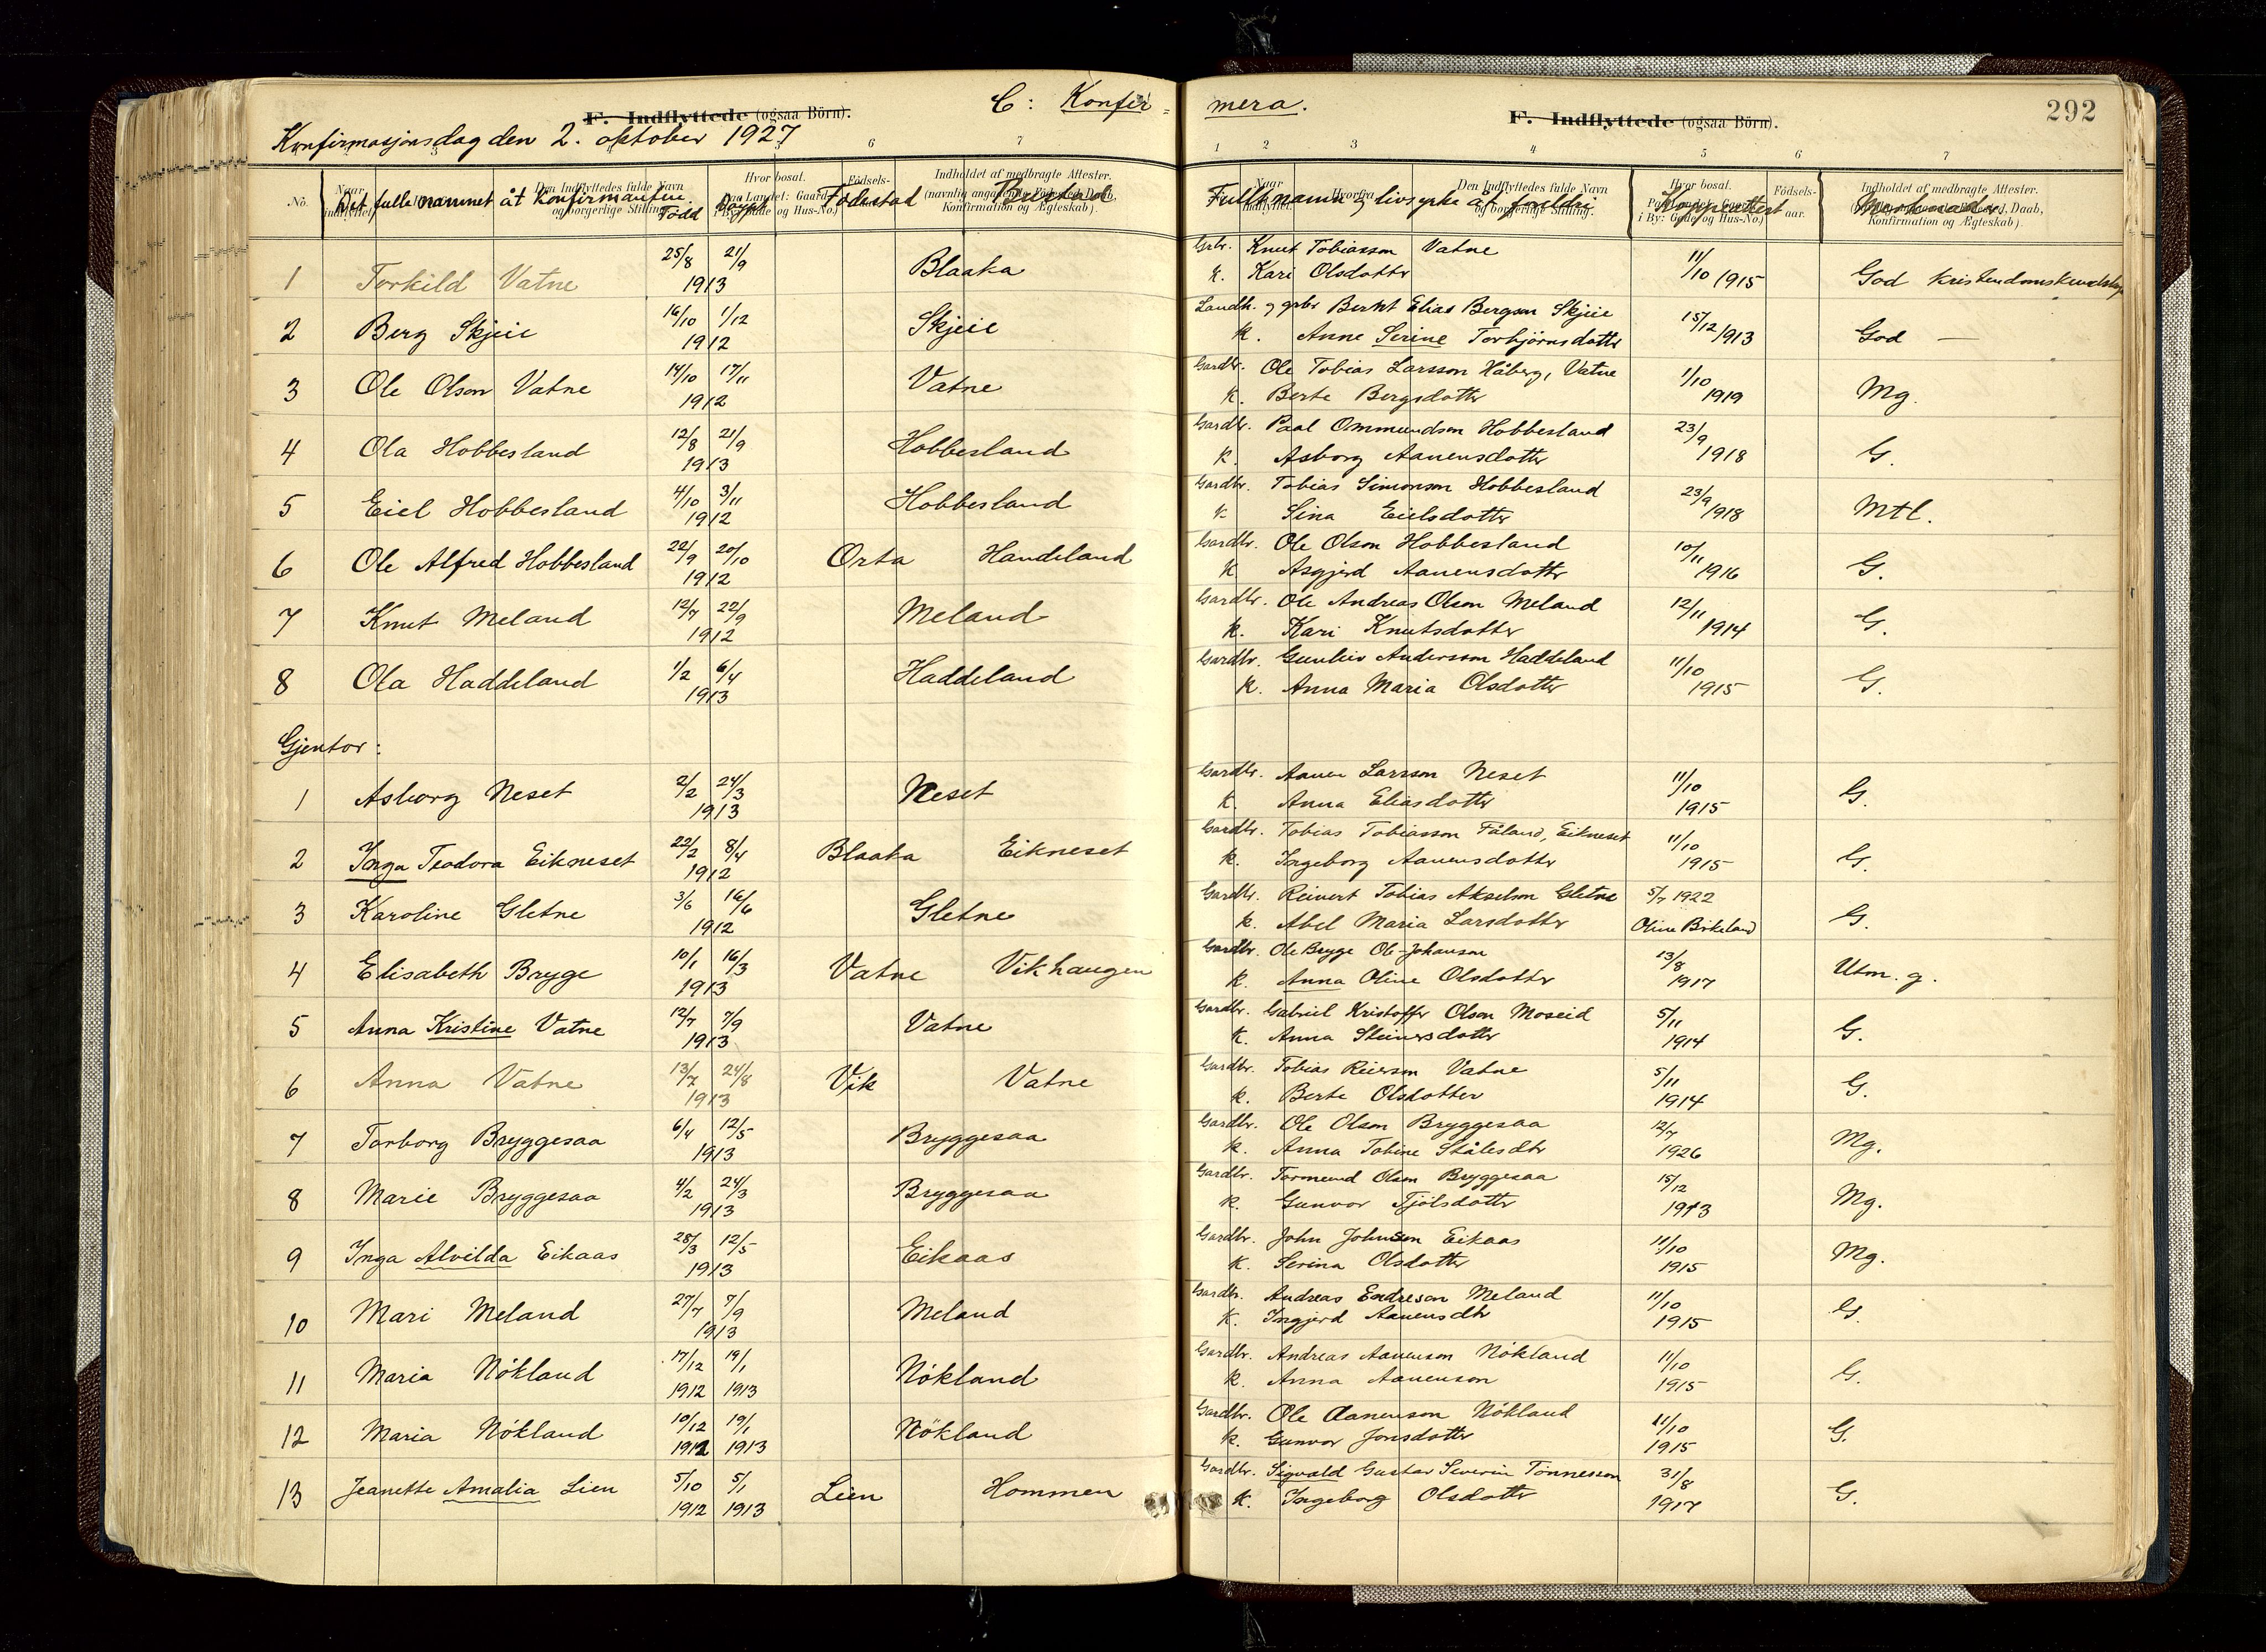 C: Konfir-
mera.
F. Indflyttede (ogsaa Börn).
F. Indflyttede (ogsaa Börn).
292
Konfirmasjonsdag den 2. oktober 1927
6 7
1 2 3 4 5 6 7
No. Det fulle nammet åt konfirmanten. Född Döypt Födestad Bustad
Fullt namn og livsyrke åt foreldri Koppeattest Merknader
1 Torkild Vatne 25/8 21/9 1913 Blaaka
Grbr. Knut Tobiasson Vatne 11/10 1915 God kristendomskundskap
k. Kari Olsdotter
2 Berg Skjeie 16/10 1/12 1912 Skjeie
Landh. og grbr Berthl Elias Bergson Skjeie 15/12 1913 God —
k. Anne Serine Torbjörnsdotter
3 Ole Olson Vatne 14/10 17/11 1912 Vatne
Gardbr. Ole Tobias Larsson Håberg, Vatne 1/10 1919 Mg.
k. Berte Bergsdotter
4 Ola Hobbesland 12/8 21/9 1913 Hobbesland
Gardbr. Paal Ommundson Hobbesland 23/9 1918 G.
k. Asborg Aanensdotter
5 Eiel Hobbesland 4/10 3/11 1912 Hobbesland
Gardbr. Tobias Simonson Hobbesland 23/9 1918 Mtl.
k. Sina Eielsdotter
6 Ole Alfred Hobbesland 22/9 20/10 1912 Orta Handeland
Gardbr. Ole Olson Hobbesland 10/11 1916 G.
k. Asgjerd Aanensdotter
7 Knut Meland 12/7 22/9 1912 Meland
Gardbr. Ole Andreas Olson Meland 12/11 1914 G.
k. Kari Knutsdotter
8 Ola Haddeland 1/2 6/4 1913 Haddeland
Gardbr. Gunleiv Andersson Haddeland 11/10 1915 G.
k. Anna Maria Olsdotter
Gjentor:
1 Asborg Neset 2/2 24/3 1913 Neset
Gardbr. Aanen Larsson Neset 11/10 1915 G.
k. Anna Eliasdotter
2 Inga Teodora Eikneset 22/2 8/4 1912 Blaaka Eikneset
Gardbr. Tobias Tobiasson Fåland, Eikneset 11/10 1915 G.
k. Ingeborg Aanensdotter
3 Karoline Gletne 3/6 16/6 1912 Gletne
Gardbr. Reinert Tobias Akselson Gletne 5/7 1922 G.
k. Abel Maria Larsdotter Oline Birkeland
4 Elisabeth Bryge 10/1 16/3 1913 Vatne Vikhaugen
Gardbr. Ole Bryge Ole Johanson 13/8 1917 Utm. g.
k. Anna Oline Olsdotter
5 Anna Kristine Vatne 12/7 7/9 1913 Vatne
Gardbr. Gabriel Kristoffer Olson Moseid 5/11 1914 G.
k. Anna Steinersdotter
6 Anna Vatne 13/7 24/8 1913 Vik Vatne
Gardbr. Tobias Reierson Vatne 5/11 1914 G.
k. Berte Olsdotter
7 Torborg Bryggesaa 6/4 12/5 1913 Bryggesaa
Gardbr. Ole Olson Bryggesaa 12/7 1926 Mg.
k. Anna Tobine Ståles dtr
8 Marie Bryggesaa 4/2 24/3 1913 Bryggesaa
Gardbr. Tormund Olson Bryggesaa 15/12 1913 Mg.
k. Gunvor Tjölsdotter
9 Inga Alvilda Eikaas 28/3 12/5 1913 Eikaas
Gardbr. John Johnsen Eikaas 11/10 1915 Mg.
k. Serina Olsdotter
10 Mari Meland 27/7 7/9 1913 Meland
Gardbr. Andreas Endreson Meland 11/10 1915 G.
k. Ingjerd Aanens dtr
11 Maria Nökland 17/12 1912 19/1 1913 Nökland
Gardbr. Andreas Aanenson Nökland 11/10 1915 G.
k. Anna Aanenson
12 Maria Nökland 10/12 1912 19/1 1913 Nökland
Gardbr. Ole Aanenson Nökland 11/10 1915 G.
k. Gunvor Jonsdotter
13 Jeanette Amalia Lien 5/10 1912 5/1 1913 Lien Hommen
Gardbr. Sigvald Gustav Severin Tönnesson 31/8 1917 G.
k. Ingeborg Olsdotter